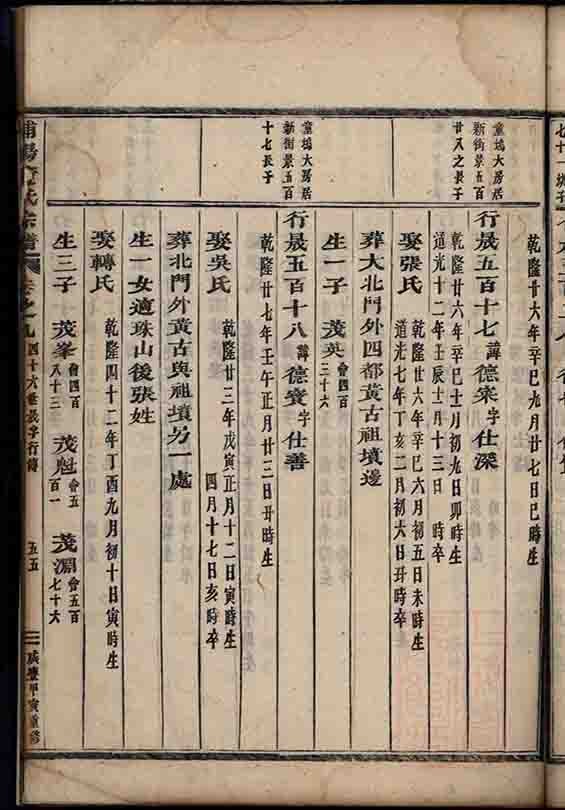 乾隆廿六年辛巳九月廿七日巳時生
童塢大房居
新街景五百
廿八之長子
行晟五百十七諱德 字仕深
乾隆廿六年辛巳十一月初九日卯時生
道光十二年壬辰十一月十三日 時卒
娶張氏
乾隆廿六年辛巳六月初五日未時生
道光七年丁亥二月初六日丑時卒
葬大北門外四都黃古祖墳邊
生一子 茂英會四百三十六
童塢大房居
新街景五百
十七長子
行晟五百十八諱德寶字仕善
乾隆廿七年壬午正月廿三日丑時生
娶吳氏
乾隆廿三年戊寅正月十二日寅時生
四月十七日亥時卒
葬北門外黃古與祖墳另一處
生一女適珠山後張姓
娶轉氏
乾隆四十二年丁酉九月初十日寅時生
生三子 茂峯會四百八十三 茂魁會五百一 茂淵會五百七十六
浦陽 氏宗譜 卷之九 四十六世長字行傳 五五 咸豐甲寅重修